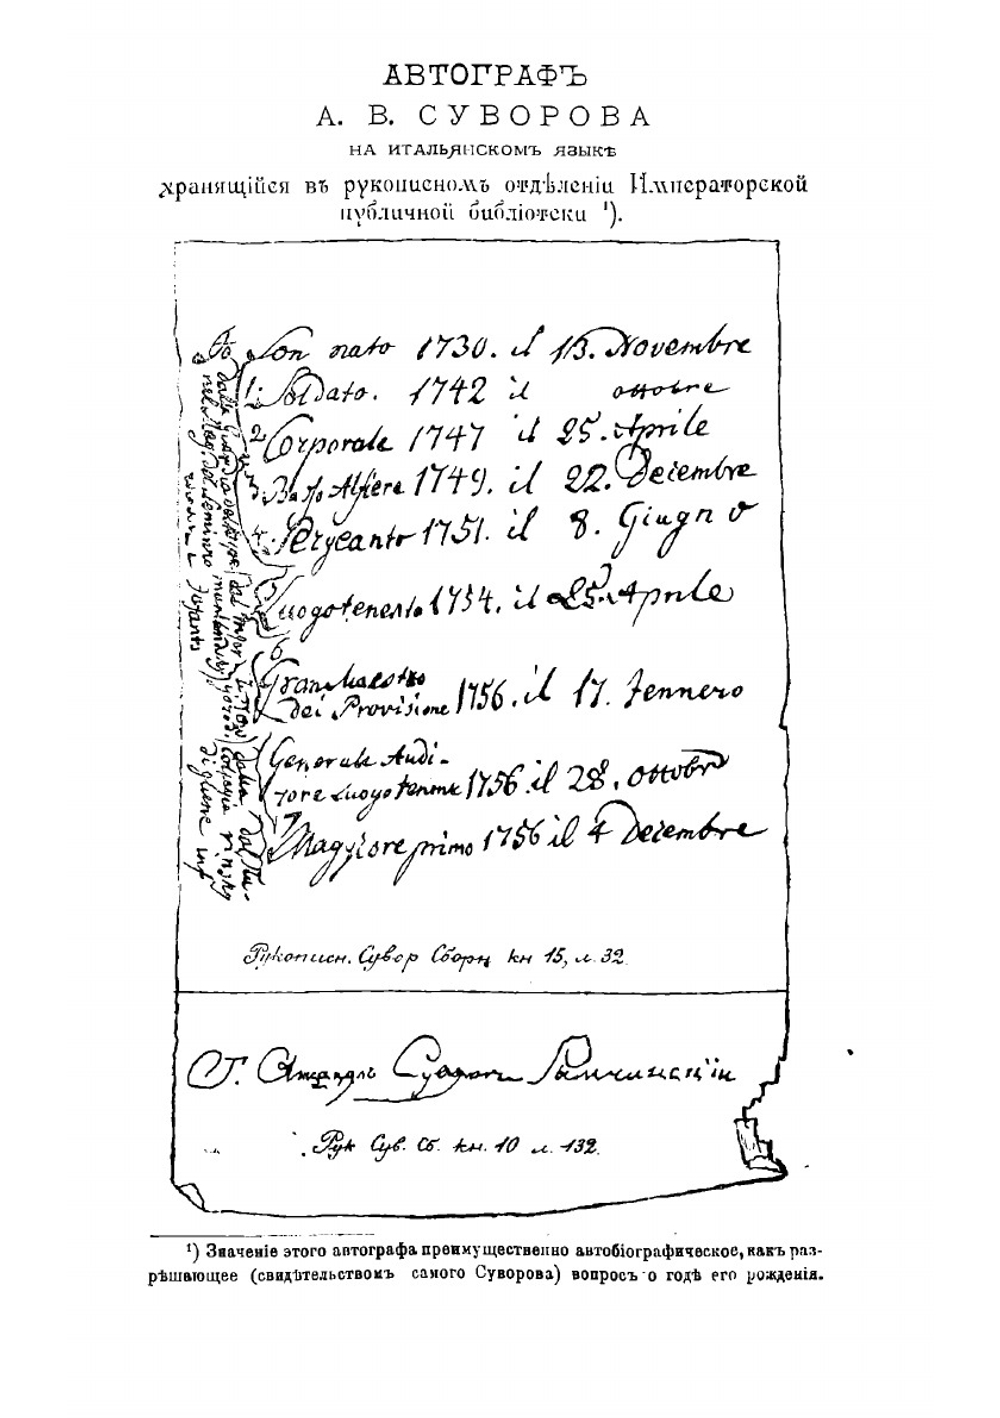 АВТОГРАФЪ
А. В. СУВОРОВА
НА ИТАЛЬЯНСКОМЪ ЯЗЫКѢ
хранящійся въ рукописномъ отдѣленіи Императорской
публичной библіотеки ¹).
Son nato 1730. il 13. Novembre
1. Soldato. 1742 il ottobre
2 Corporale 1747 il 25. Aprile
3. Basso Alfiere 1749. il 22. Decembre
4. Sergeanto 1751. il 8. Giugno
5 Luogotenento 1754. il 25. Aprile
6
Gran Maestro
dei Provisione 1756. il 17. Jennero
Generale Audi-
tore Luogotenente 1756. il 28. ottobre
7
Maggiore primo 1756 il 4 Decembre
Рукописн. Сувор Сборн кн 15, л. 32.
Г. Александръ Суворовъ Рымникскій
Рук Сув. Сб. кн. 10 л. 132.
¹) Значеніе этого автографа преимущественно автобіографическое, какъ раз-
рѣшающее (свидѣтельствомъ самого Суворова) вопросъ о годѣ его рожденія.